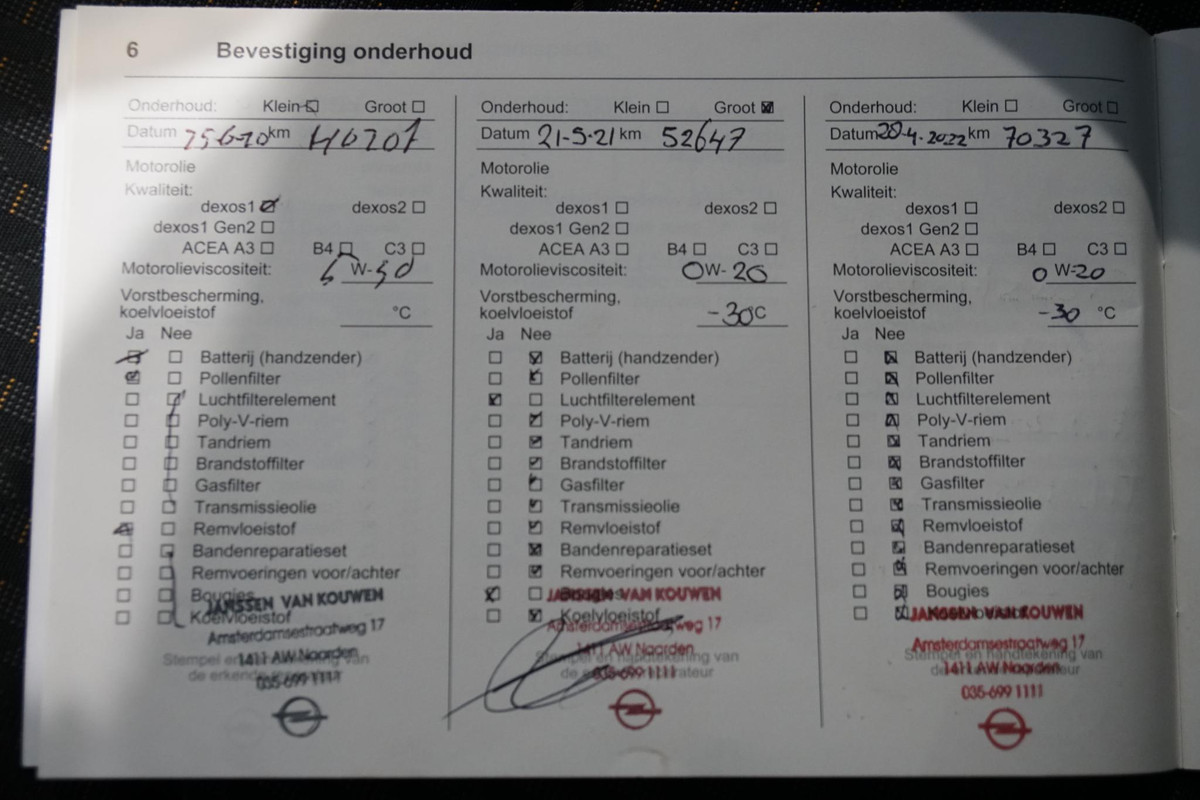 6 Bevestiging onderhoud
Onderhoud: Klein Groot
Datum km 40707
Motorolie
Kwaliteit:
dexos1 dexos2
dexos1 Gen2
ACEA A3 B4 C3
Motorolieviscositeit: W-
Vorstbescherming,
koelvloeistof °C
Ja Nee
Batterij (handzender)
Pollenfilter
Luchtfilterelement
Poly-V-riem
Tandriem
Brandstoffilter
Gasfilter
Transmissieolie
Remvloeistof
Bandenreparatieset
Remvoeringen voor/achter
Bougies
Koelvloeistof
JANSSEN VAN KOUWEN
Amsterdamsestraatweg 17
1411 AW Naarden
035-699 1111
Stempel en handtekening van
de erkende
Onderhoud: Klein Groot
Datum 21-5-21 km 52647
Motorolie
Kwaliteit:
dexos1 dexos2
dexos1 Gen2
ACEA A3 B4 C3
Motorolieviscositeit: 0W-20
Vorstbescherming,
koelvloeistof -30°C
Ja Nee
Batterij (handzender)
Pollenfilter
Luchtfilterelement
Poly-V-riem
Tandriem
Brandstoffilter
Gasfilter
Transmissieolie
Remvloeistof
Bandenreparatieset
Remvoeringen voor/achter
Bougies
Koelvloeistof
JANSSEN VAN KOUWEN
Amsterdamsestraatweg 17
1411 AW Naarden
035-699 1111
Stempel en handtekening van
de
Onderhoud: Klein Groot
Datum 20-4-2022 km 70327
Motorolie
Kwaliteit:
dexos1 dexos2
dexos1 Gen2
ACEA A3 B4 C3
Motorolieviscositeit: 0W-20
Vorstbescherming,
koelvloeistof -30 °C
Ja Nee
Batterij (handzender)
Pollenfilter
Luchtfilterelement
Poly-V-riem
Tandriem
Brandstoffilter
Gasfilter
Transmissieolie
Remvloeistof
Bandenreparatieset
Remvoeringen voor/achter
Bougies
JANSSEN VAN KOUWEN
Amsterdamsestraatweg 17
Stempel en handtekening van
1411 AW Naarden
035-699 1111